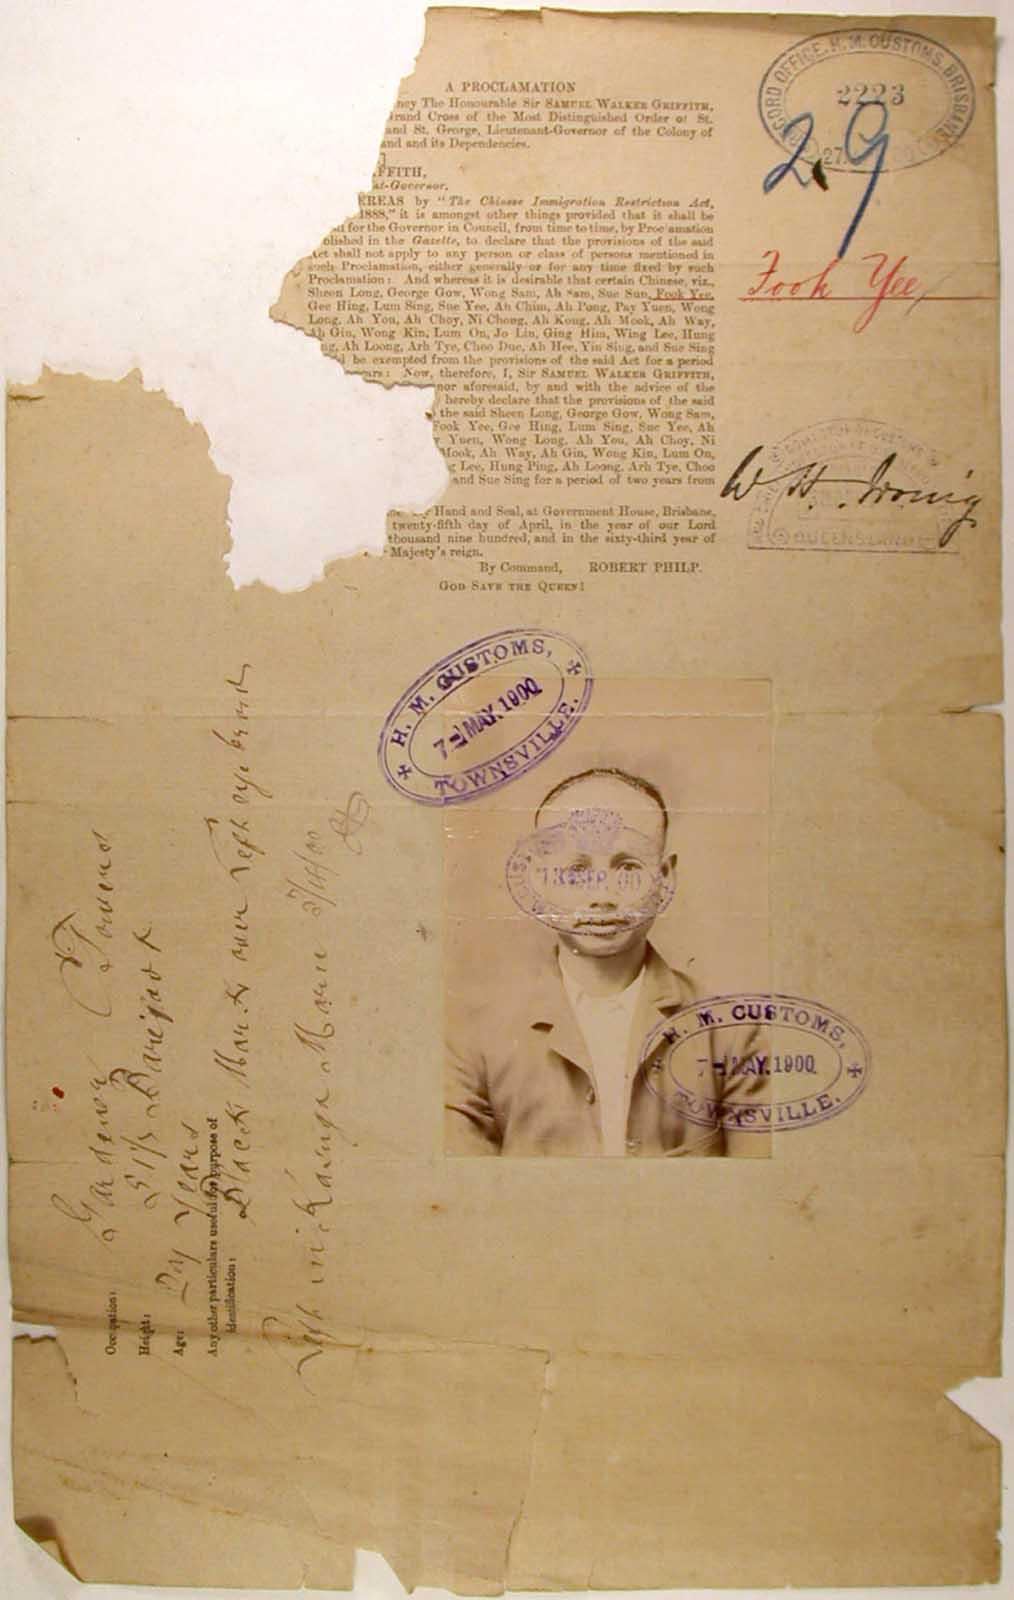 A PROCLAMATION
The Honourable Sir SAMUEL WALKER GRIFFITH,
Grand Cross of the Most Distinguished Order of St.
and St. George, Lieutenant-Governor of the Colony of
and its Dependencies.
FFITH,
-Governor.
EREAS by "The Chinese Immigration Restriction Act,
1888," it is amongst other things provided that it shall be
for the Governor in Council, from time to time, by Proclamation
published in the Gazette, to declare that the provisions of the said
Act shall not apply to any person or class of persons mentioned in
such Proclamation, either generally or for any time fixed by such
Proclamation: And whereas it is desirable that certain Chinese, viz.,
Sheen Long, George Gow, Wong Sam, Ah Sam, Sue Sun, Fook Yee,
Gee Hing, Lum Sing, Sue Yee, Ah Chim, Ah Pong, Pay Yuen, Wong
Long, Ah You, Ah Choy, Ni Chong, Ah Kong, Ah Mook, Ah Way,
Ah Gin, Wong Kin, Lum On, Jo Lin, Ging Him, Wing Lee, Hung
ng, Ah Loong, Arh Tye, Choo Due, Ah Hee, Yin Sing, and Sue Sing
be exempted from the provisions of the said Act for a period
ears: Now, therefore, I, Sir SAMUEL WALKER GRIFFITH,
nor aforesaid, by and with the advice of the
hereby declare that the provisions of the said
the said Sheen Long, George Gow, Wong Sam,
Fook Yee, Gee Hing, Lum Sing, Sue Yee, Ah
Yuen, Wong Long, Ah You, Ah Choy, Ni
Mook, Ah Way, Ah Gin, Wong Kin, Lum On,
g Lee, Hung Ping, Ah Loong, Arh Tye, Choo
and Sue Sing for a period of two years from
Hand and Seal, at Government House, Brisbane,
twenty-fifth day of April, in the year of our Lord
thousand nine hundred, and in the sixty-third year of
Majesty's reign.
By Command, ROBERT PHILP.
GOD SAVE THE QUEEN!
RECORD OFFICE. H. M. CUSTOMS, BRISBANE
2223
27
29
Fook Yee
W H Irving
QUEENSLAND
H. M. CUSTOMS,
7 MAY. 1900
TOWNSVILLE.
H. M. CUSTOMS,
7 MAY. 1900
TOWNSVILLE.
Occupation: Gardener
Height: 5
Age: Years
Any other particulars useful for purpose of
identification: Black Mark over left eye brow
Left